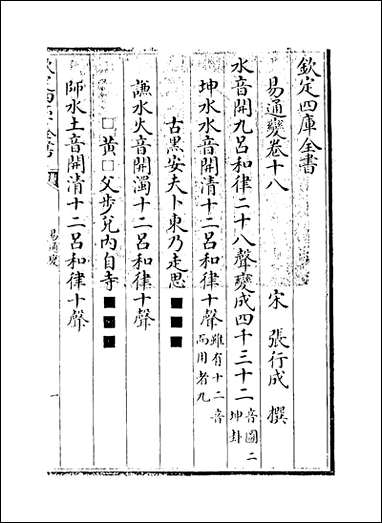 欽定四庫全書
易通變卷十八
宋 張行成 撰
水音開九呂和律二十八聲變成四千三十二 音圖二 坤卦
坤水水音開清十二呂和律十聲 雖有十二音 而用者九
古黑安夫卜東乃走思■■■
謙水火音開濁十二呂和律十聲
□黃□父步兌內自寺■■■
師水土音開清十二呂和律十聲
易通變
一